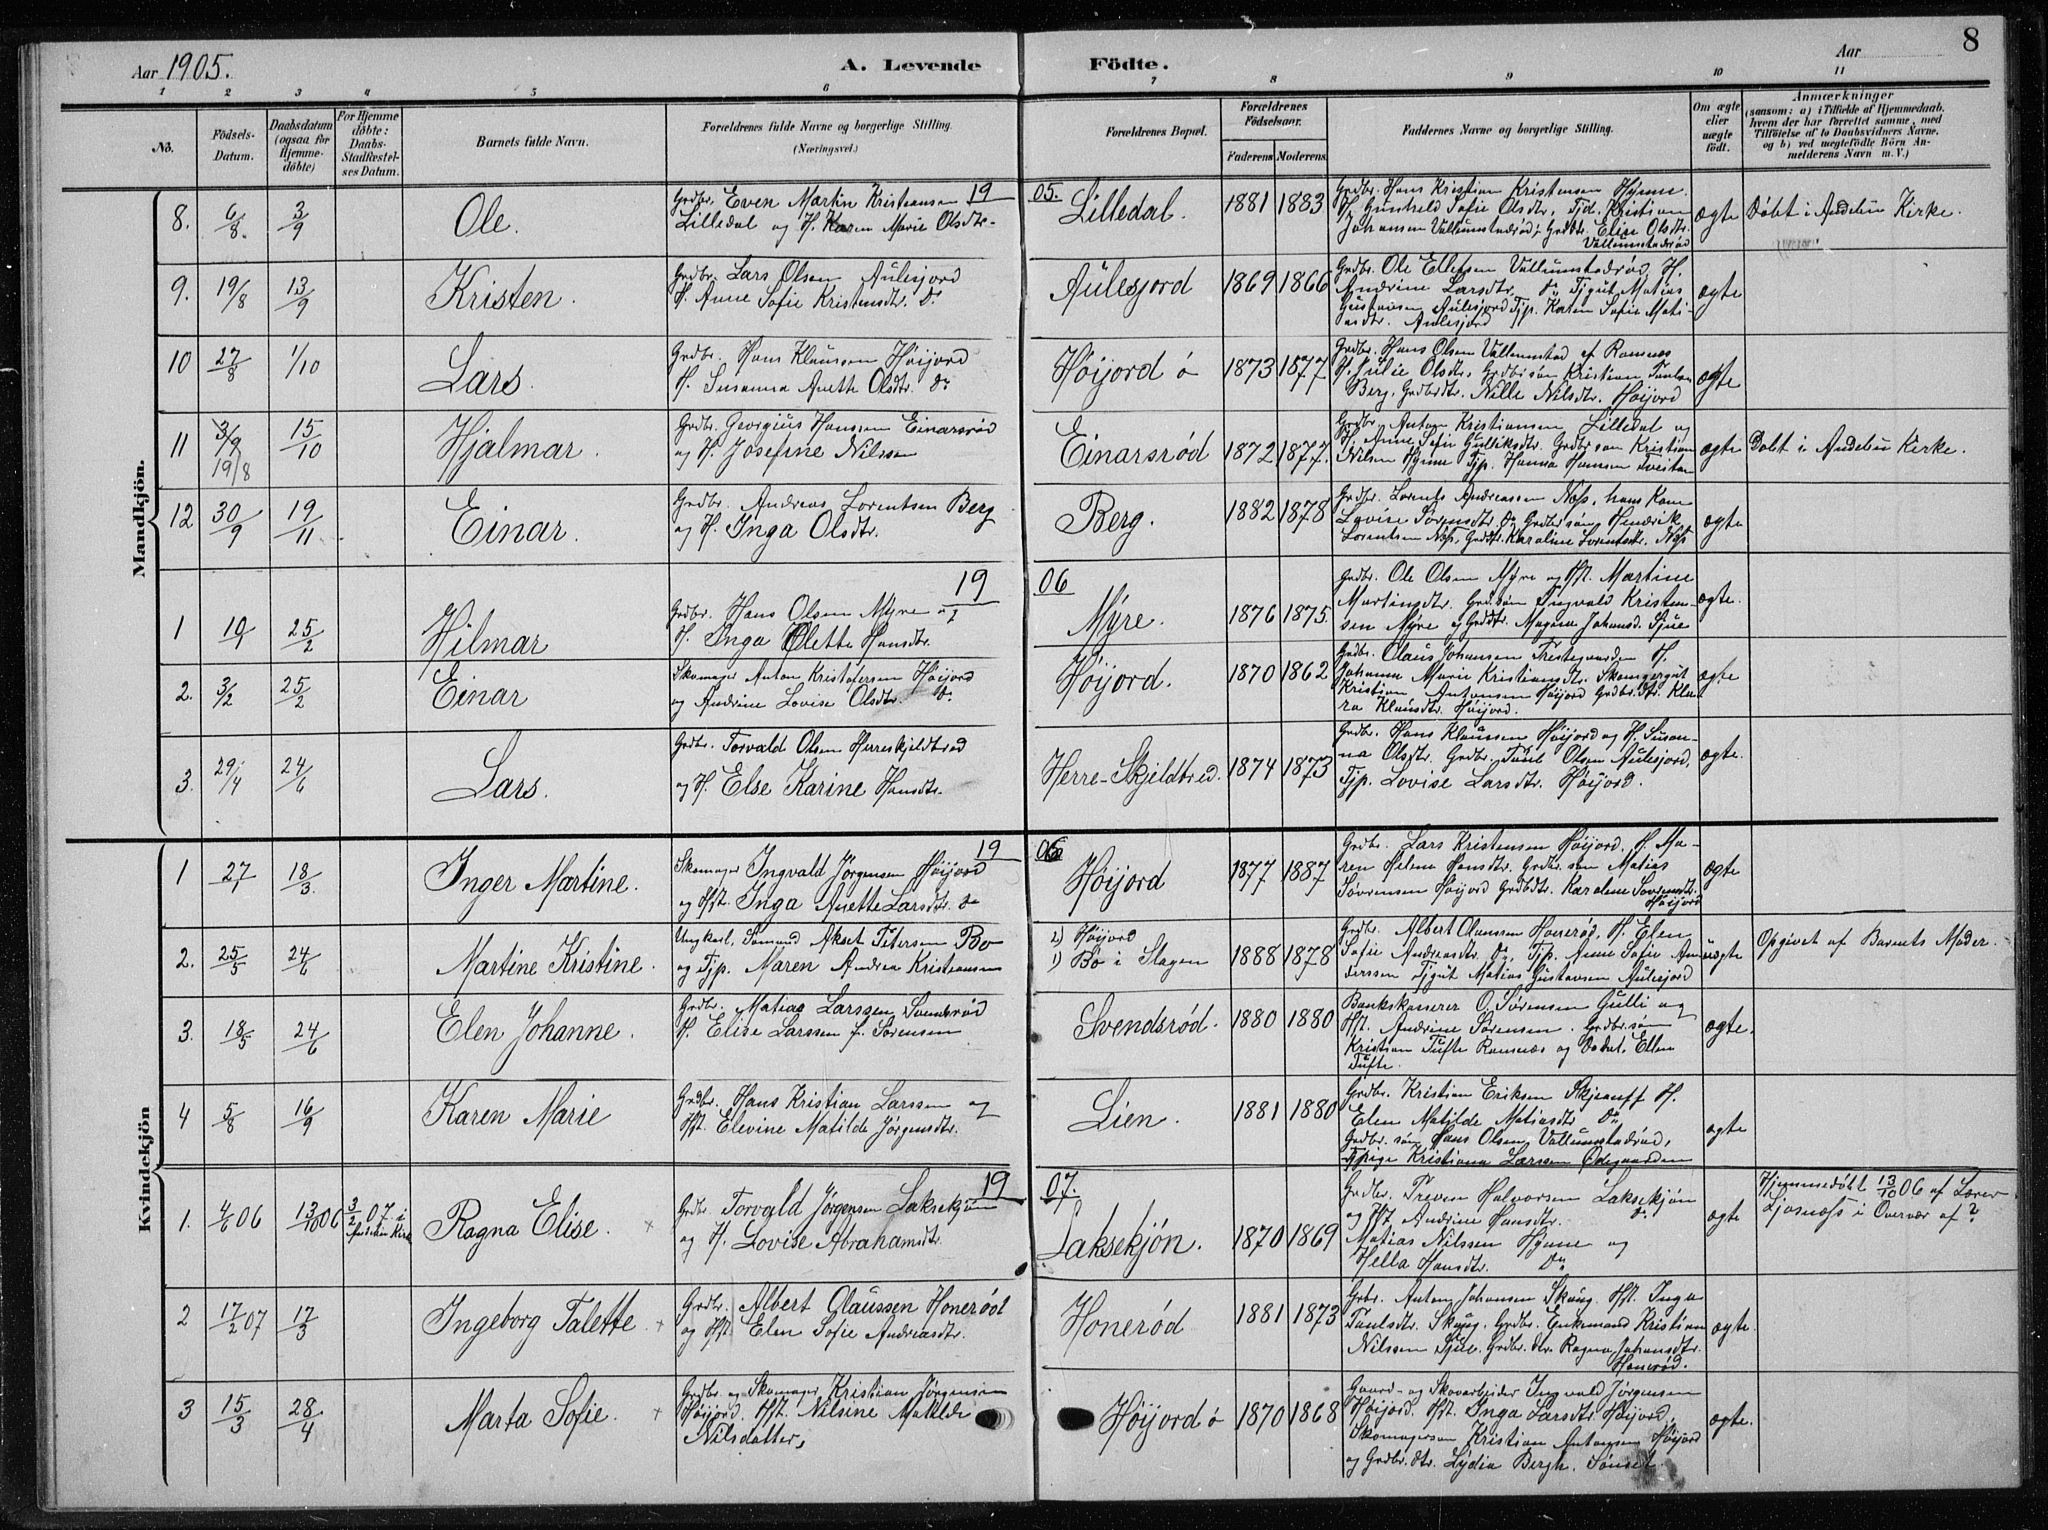 Aar 1905.
A. Levende Födte.
Aar
8
1 2 3 4 5 6 7 8 9 10 11
No.
Födsels-Datum.
Daabsdatum (ogsaa for Hjemmedöbte)
For Hjemmedöbte: Daabs-Stadfæstelses Datum.
Barnets fulde Navn.
Forældrenes fulde Navne og borgerlige Stilling. (Næringsvei.)
Forældrenes Bopæl.
Forældrenes Födselsaar.
Faderens Moderens
Faddernes Navne og borgerlige Stilling.
Om ægte eller uægte födt.
Anmærkninger
(saasom: a) i Tilfælde af Hjemmedaab. hvem der har forrettet samme, med Tilföielse af to Daabsvidners Navne. og b) ved uægtefödte Börn Anmelderens Navn m. V.)
Mandkjön.
1905.
8. 6/8 3/9 Ole. Grdbr. Even Martin Kristiansen Lilledal og H. Karen Marie Olsdtr. Lilledal. 1881 1883 Grdbr. Hans Kristian Kristensen Hynne H. Gunhild Sofie Olsdtr, Tjd. Kristian Johansen Vallumstadrød, Grdbr. Elise Olsdtr. Vallumstadrød ægte Døbt i Andebu Kirke.
9. 19/8 13/9 Kristen. Grdbr. Lars Olsen Aulesjord H. Anne Sofie Kristensdtr. Do Aulesjord 1869 1866 Grdbr. Ole Ellefsen Vallumstadrød, H. Andrine Larsdtr. Do Tjgut Matias Gustavsen Aulesjord Tjp. Karen Sofie Matiasdtr. Aulesjord ægte
10 27/8 1/10 Lars. Grdbr. Hans Klausen Høijord H. Susanna Anette Olsdtr. Do Høijord ø 1873 1877 Grdbr. Hans Olsen Vallumstad af Ramnæs H. Julie Olsdtr, Grdbr søn Kristian Paulsen Berg, Grdbrdtr. Nille Nilsdtr. Høijord ægte
11 3/9 19/8 15/10 Hjalmar. Grdbr. Georgius Hansen Einarsrød og H. Josefine Nilsen Einarsrød 1872 1877. Grdbr. Anton Kristiansen Lilledal og H. Anne Sofie Gulliksdtr. Grdbr søn Kristian Nilsen Hynne Tjp. Hanna Hansen Tveitan ægte Døbt i Andebu Kirke.
12 30/9 19/11 Einar. Grdbr. Andreas Lorentsen Berg og H. Inga Olsdtr. Berg. 1882 1878 Grdbr. Lorents Andreassen Næs, hans Kone Lovise Sørensdtr. Do Grdbr søn, Hendrik Lorentsen Næs, Grdtr. Karoline Lorentsdtr. Næs ægte
1906
1 19/1 25/2 Hilmar Grdbr. Hans Olsen Myre og H. Inga Olette Hansdtr. Myre. 1876 1875. Grdbr. Ole Olsen Myre og Hst. Martine Martinsdtr. Grdsøn Ingvald Kristensen Myre og Grddtr. Magna Johansd. Gjue ægte.
2. 3/2 25/2 Einar Skomager Anton Kristofersen Høijord og Andrine Lovise Olsdtr. Do. Høijord. 1870 1862 Grdbr. Claus Johansen Prestegaarden H. Johanna Marie Kristiansdtr. Skomagergut Kristian Antonsen Høijord Grdbr. dtr. Klara Klausdtr. Høijord. ægte
3. 29/4 24/6 Lars. Grdbr. Torvald Olsen Herreskjeldbrød og H. Else Karine Hansdtr. Herre-Skjeldbred. 1874 1873 Grdbr. Hans Klausen Høijord og H. Susanna Olsdtr. Grdbr. Paul Olsen Aulesjord. Tjp. Lovise Larsdtr. Høijord. ægte.
Kvindekjön
1906
1 27/1 18/3. Inger Martine. Skomager Ingvald Jörgensen Høijord og Hst. Inga Anette Larsdtr. Do Høijord 1877 1887 Grdbr. Lars Kristensen Høijord. H. Maren Helene Hansdtr. Grdbr. søn Matias Sörensen Høijord Grdbdtr. Karoline Sörensdtr. Høijord ægte
2. 25/5 24/6 Martine Kristine. Ungkarl. Sømand Aksel Petersen Bo og Tjp. Maren Andrea Kristiansen 2) Høijord 1) Bo i Slagen 1888 1878 Grdbr. Albert Olaussen Honerød, H. Elen Sofie Andreasdtr. Do, Tjp. Anne Sofie Anderssen Tjgut Matias Gustavsen Aulesjord uægte Opgivet af Barnets Moder.
3. 18/5 24/6 Elen Johanne. Grdbr. Matias Larssen Svendsrød H. Elise Larssen f. Sørensen Svendsrød. 1880 1880 Bankkaserer O. Sørensen Gulli og Hst. Andrine Sørensen. Grdbr. søn Kristian Tufte Ramnæs og Ellen Tufte. ægte.
4 5/8 16/9 Karen Marie Grdbr. Hans Kristian Larssen og Hst. Elevine Matilde Jørgensdtr. Lien. 1881 1880 Grdbr. Kristian Eriksen Skjeauff H. Elen Matilde Matiasdtr Do Grdbr. søn Hans Olsen Vallumstadrød, Tjpige Kristiana Larssen Ødegaarden ægte
1907.
1. 4/6 06 13/10 06 3/2 07 i Andebu Kirke Ragna Elise. Grdbr. Torvald Jørgensen Laksekjøn og H. Lovise Abrahamsdtr. Laksekjøn. 1870 1869 Grdbr. Treven Halvorsen Laksekjøn og Hst. Andrine Hansdtr. Do Matias Nilssen Hynne og Hella Hansdtr. Do ægte Hjemmedøbt 13/10 06 af Lærer Ljosnæss i Overvær af ?
2 17/2 07 17/3 Ingeborg Talette. Grdbr. Albert Olaussen Honerød og Hst. Elen Sofie Andreasdtr. Honerød 1881 1873 Grbr. Anton Johansen Skaug. Hst. Inga Paulsdtr. Skaug. Grdbr. Enkemand Kristian Nilssen Gjue. Grdbr. dtr. Ragna Johansdtr. Honerød. ægte.
3 15/3 28/4 Marta Sofie. Grdbr. og Skomager Kristian Jørgensen Høijord. Hst. Nilsine Matilde Nilsdatter, Høijord ø 1870 1868 Gaard- og Skovarbeider Ingvald Jørgensen Høijord. Hst. Inga Larsdtr. Høijord, Skomagersøn Kristian Antonsen Høijord og Grdbr. dtr. Lydia Bergh. Sønset. ægte.